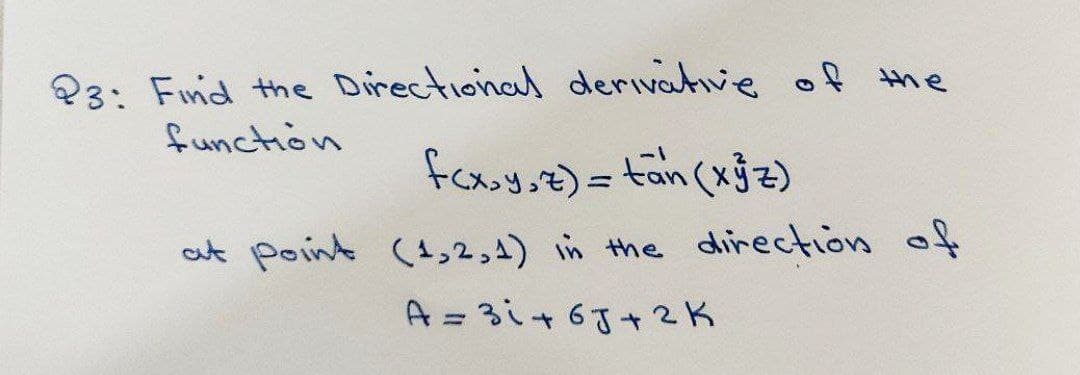 Q3: Find the Directional derivative of the
function
f(x,y,z) = tan⁻¹(xy²z)
at point (1,2,1) in the direction of
A = 3i + 6J + 2K